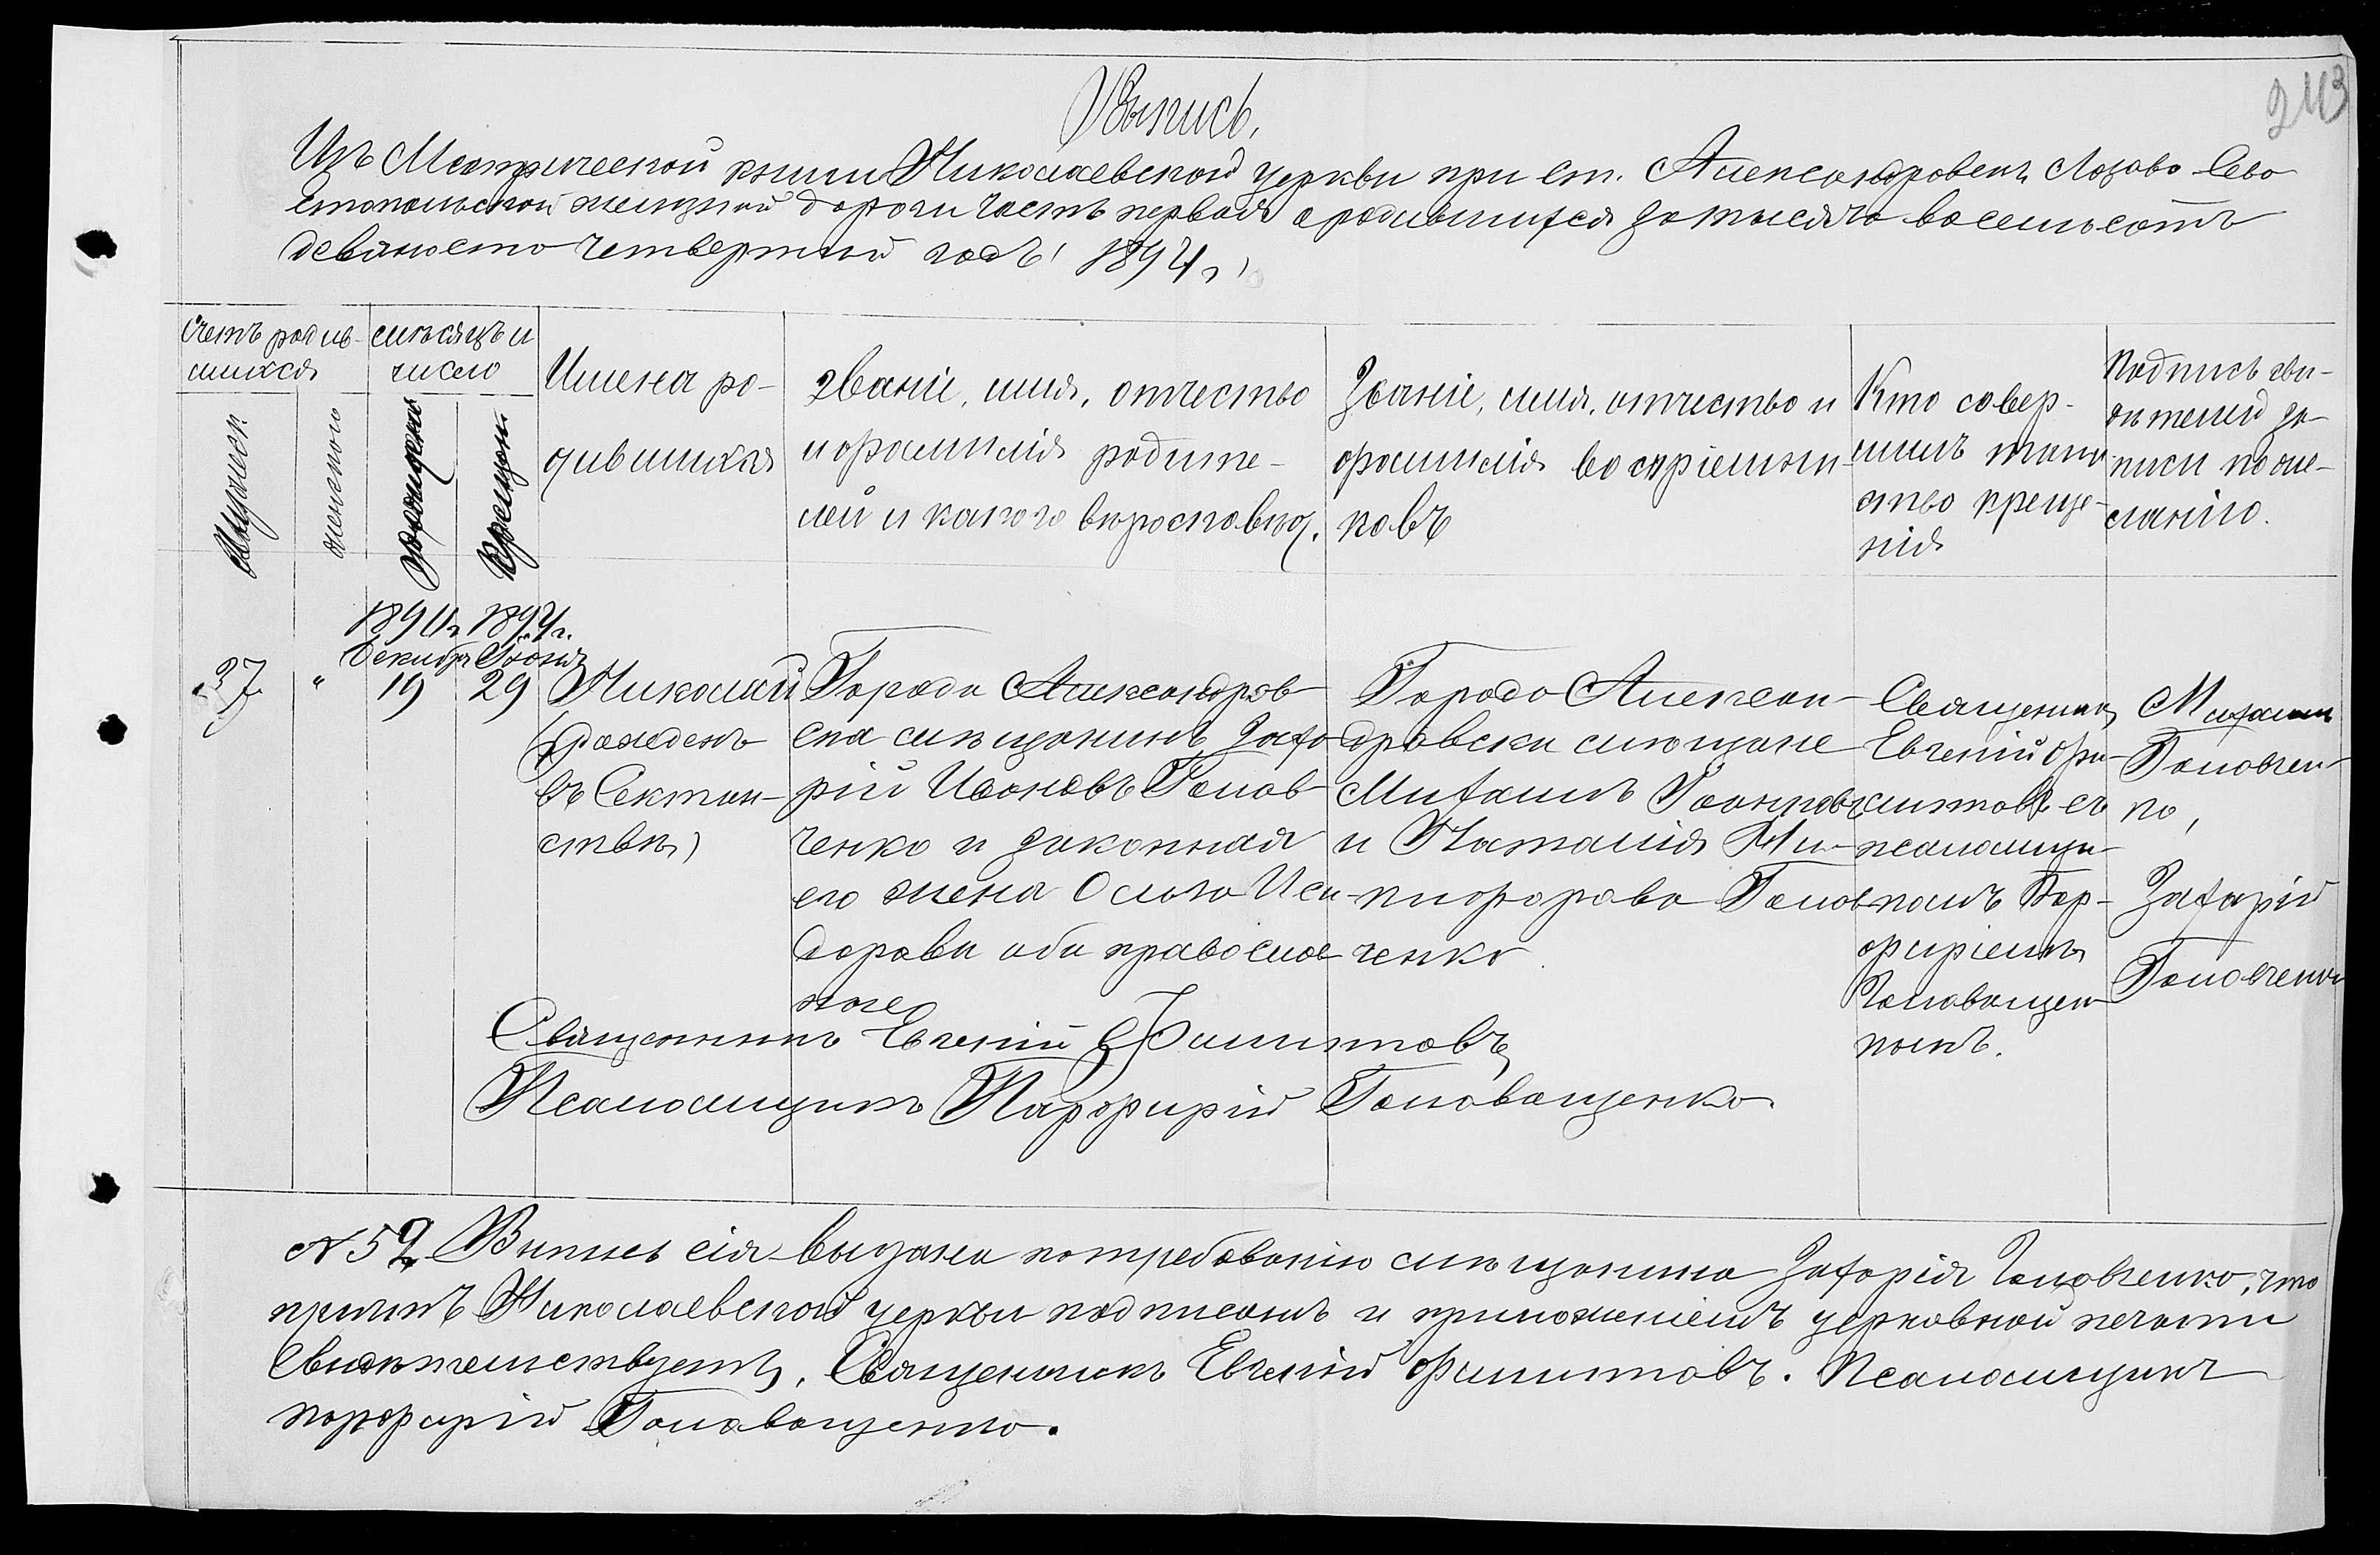 243
Выпись,
Изъ Метрической книги Николаевской церкви при ст. Александровскъ Лозово-Сево
стопольской желѣзной дороги часть первая о родившихся за тысяча восемьсотъ
девяносто четвертый годъ! 1894 г,
Счетъ родив-
шихся
мѣсяцъ и
число
Мужеск.
женского
рожденія
Крещен.
Имена ро-
дившихся
Званіе, имя, отчество
и фамилія родите-
лей и какого вѣроисповѣд.
Званіе, имя, отчество и
фамилія воспріемни-
ковъ
Кто совер-
шилъ таин
ство креще-
нія
Подпись сви-
дѣтелей за-
писи по же-
ланію.
1890 г. 1894 г.
Декабр. Іюня
37 " 19 29
Николай
(рожденъ
въ Сектан-
ствѣ)
Города Александров-
ска мѣщанинъ Заха
рій Ивановъ Голов-
ченко и законная
его жена Ольга Иси-
дорова оба православ
ные
Города Алексан-
дровска мѣщане
Михаилъ Іоанновъ
и Наталія Ни-
кифорова Голов
ченко.
Священник
Евгеній Фи-
липповъ съ
псаломщи-
комъ Пор-
фиріемъ
Головащен-
комъ.
Михаилъ
Головчен-
ко,
Захарій
Головченко
Священникъ Евгеній Филипповъ
Псаломщикъ Порфирій Головащенко.
№ 59 Выпись сія выдана по требованію мѣщанина Захарія Головченко, что
причтъ Николаевской церкви подписомъ и приложеніемъ церковной печати
Свидѣтельствуетъ, Священникъ Евгеній Филипповъ. Псаломщикъ
порфирій Головащенко.